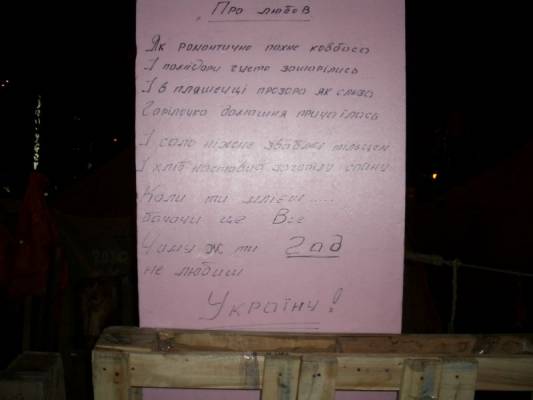 Про любов
Як романтично пахне ковбаса
І помідори густо зашарілись
І в пляшенці прозора як сльоза
Горілочка домашня причаїлась
І сало ніжне звабливим тільцем
І хліб наставив загорілу спину
Коли ти млієш.....
бачачи це Все
Чому ж ти Гад
не любиш
Україну!